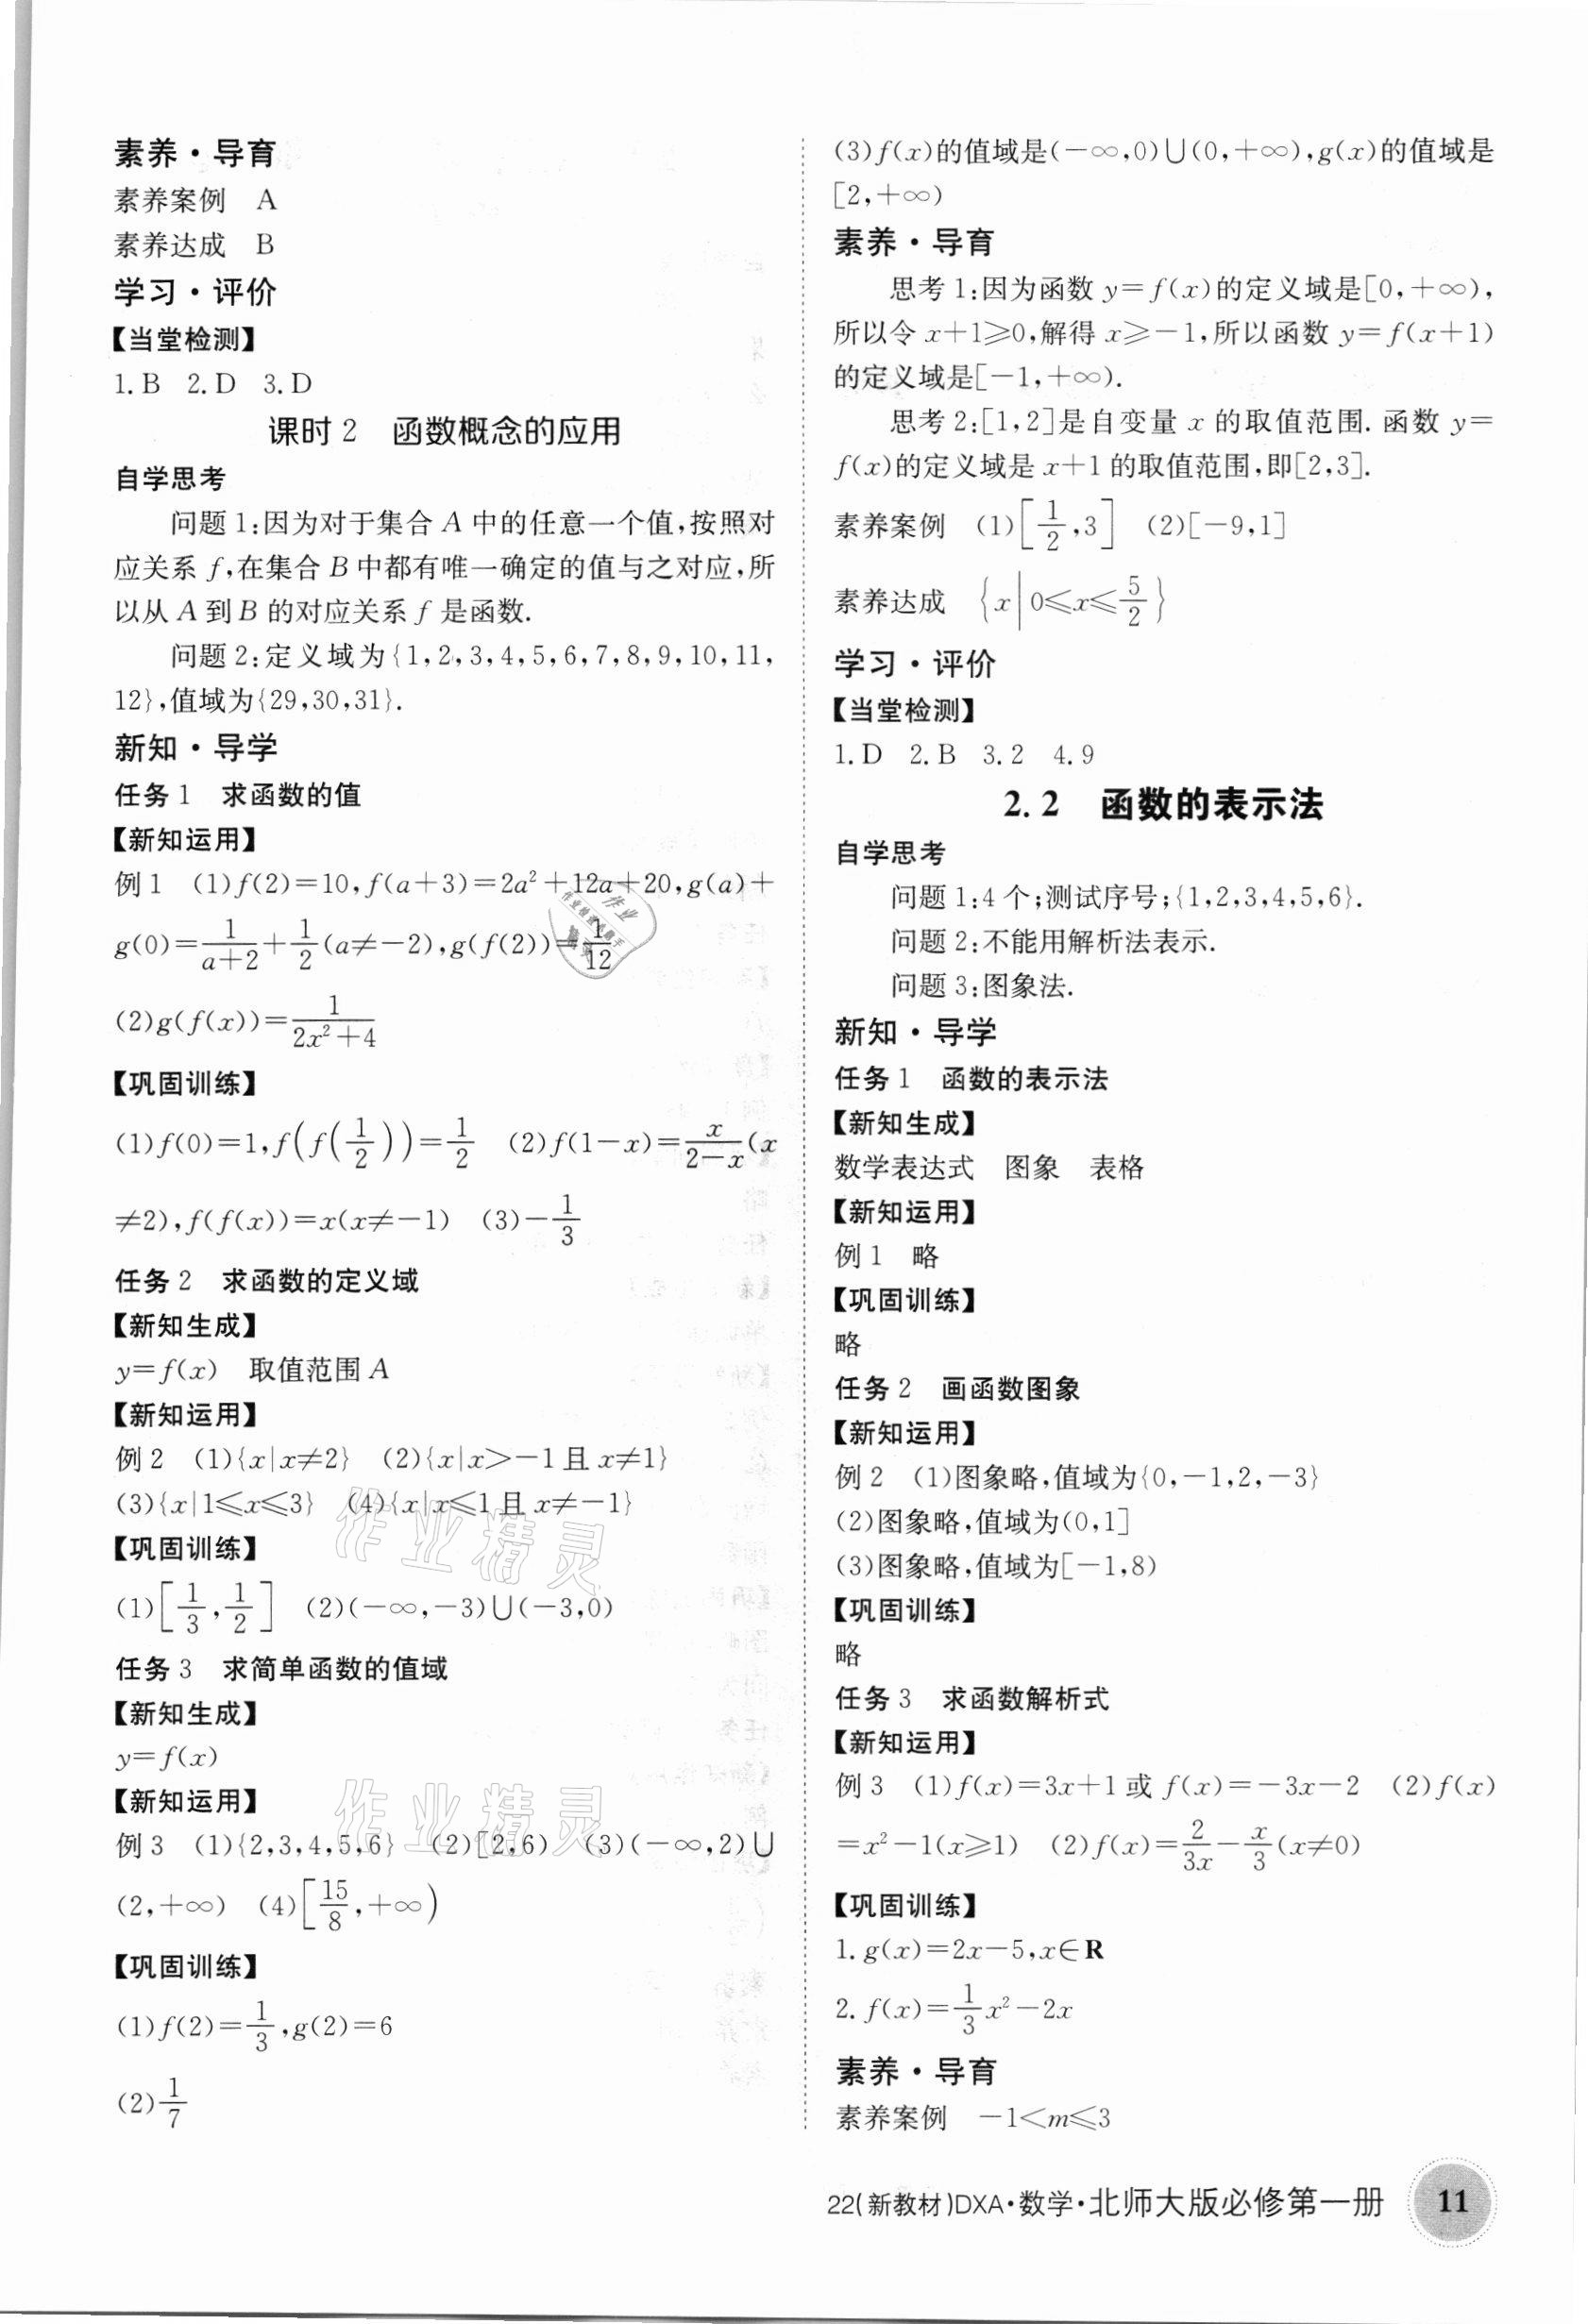 素养·导育
素养案例 A
素养达成 B
学习·评价
【当堂检测】
1.B 2.D 3.D
课时2 函数概念的应用
自学思考
问题1:因为对于集合A中的任意一个值,按照对
应关系f,在集合B中都有唯一确定的值与之对应,所
以从A到B的对应关系f是函数.
问题2:定义域为{1,2,3,4,5,6,7,8,9,10,11,
12},值域为{29,30,31}.
新知·导学
任务1 求函数的值
【新知运用】
例1 (1)f(2)=10,f(a+3)=2a²+12a+20,g(a)+
g(0)=1/(a+2)+1/2(a≠-2),g(f(2))=1/12
(2)g(f(x))=1/(2x²+4)
【巩固训练】
(1)f(0)=1,f(f(1/2))=1/2 (2)f(1-x)=x/(2-x)(x
≠2),f(f(x))=x(x≠-1) (3)-1/3
任务2 求函数的定义域
【新知生成】
y=f(x) 取值范围A
【新知运用】
例2 (1){x|x≠2} (2){x|x>-1且x≠1}
(3){x|1≤x≤3} (4){x|x≤1且x≠-1}
【巩固训练】
(1)[1/3,1/2] (2)(-∞,-3)∪(-3,0)
任务3 求简单函数的值域
【新知生成】
y=f(x)
【新知运用】
例3 (1){2,3,4,5,6} (2)[2,6) (3)(-∞,2)∪
(2,+∞) (4)[15/8,+∞)
【巩固训练】
(1)f(2)=1/3,g(2)=6
(2)1/7
(3)f(x)的值域是(-∞,0)∪(0,+∞),g(x)的值域是
[2,+∞)
素养·导育
思考1:因为函数y=f(x)的定义域是[0,+∞),
所以令x+1≥0,解得x≥-1,所以函数y=f(x+1)
的定义域是[-1,+∞).
思考2:[1,2]是自变量x的取值范围.函数y=
f(x)的定义域是x+1的取值范围,即[2,3].
素养案例 (1)[1/2,3] (2)[-9,1]
素养达成 {x|0≤x≤5/2}
学习·评价
【当堂检测】
1.D 2.B 3.2 4.9
2.2 函数的表示法
自学思考
问题1:4个;测试序号;{1,2,3,4,5,6}.
问题2:不能用解析法表示.
问题3:图象法.
新知·导学
任务1 函数的表示法
【新知生成】
数学表达式 图象 表格
【新知运用】
例1 略
【巩固训练】
略
任务2 画函数图象
【新知运用】
例2 (1)图象略,值域为{0,-1,2,-3}
(2)图象略,值域为(0,1]
(3)图象略,值域为[-1,8)
【巩固训练】
略
任务3 求函数解析式
【新知运用】
例3 (1)f(x)=3x+1或f(x)=-3x-2 (2)f(x)
=x²-1(x≥1) (2)f(x)=2/(3x)-x/3(x≠0)
【巩固训练】
1.g(x)=2x-5,x∈R
2.f(x)=1/3x²-2x
素养·导育
素养案例 -1<m≤3
22(新教材)DXA·数学·北师大版必修第一册 11
作业精灵
作业精灵